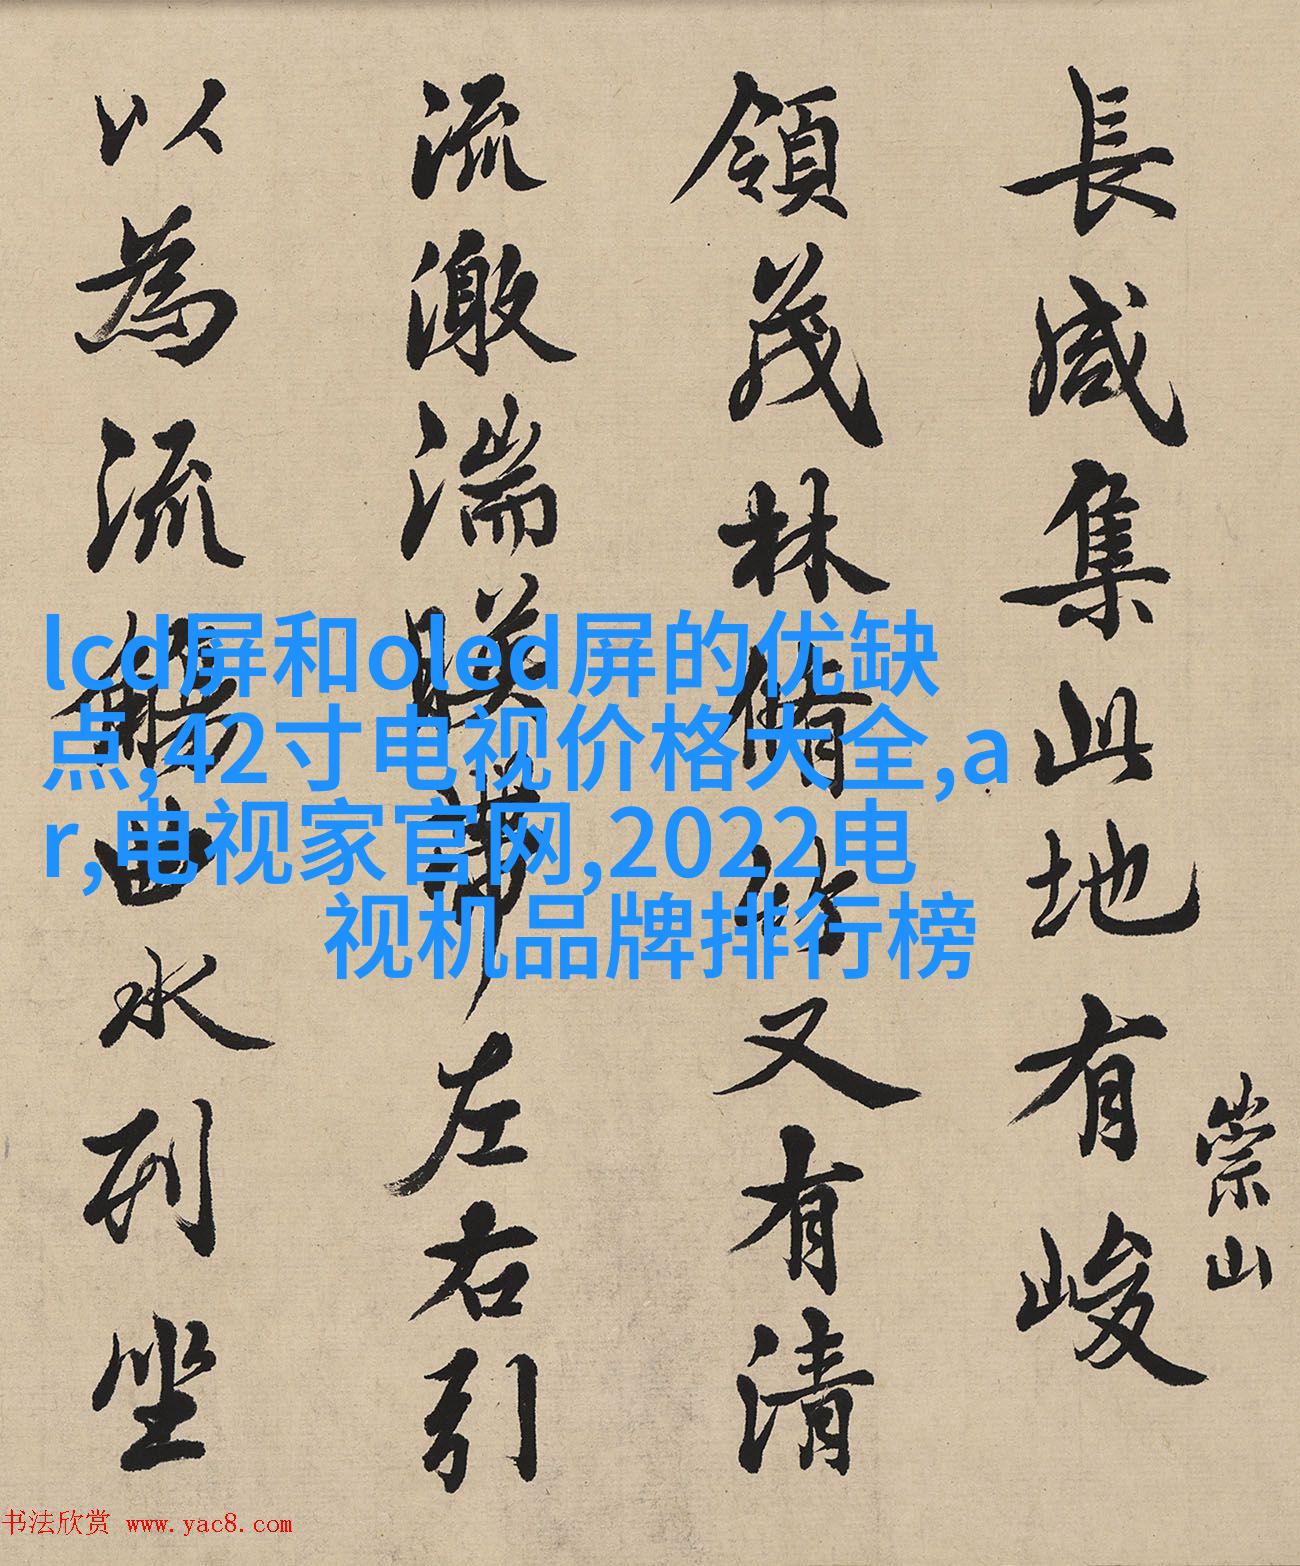 長咸集此地有峻
崇山
領茂林脩竹又有清
流激湍暎帶左右引
以為流觴曲水列坐
lcd屏和oled屏的优缺
点,42寸电视价格大全,a
r,电视家官网,2022电
视机品牌排行榜
书法欣赏 www.yac8.com